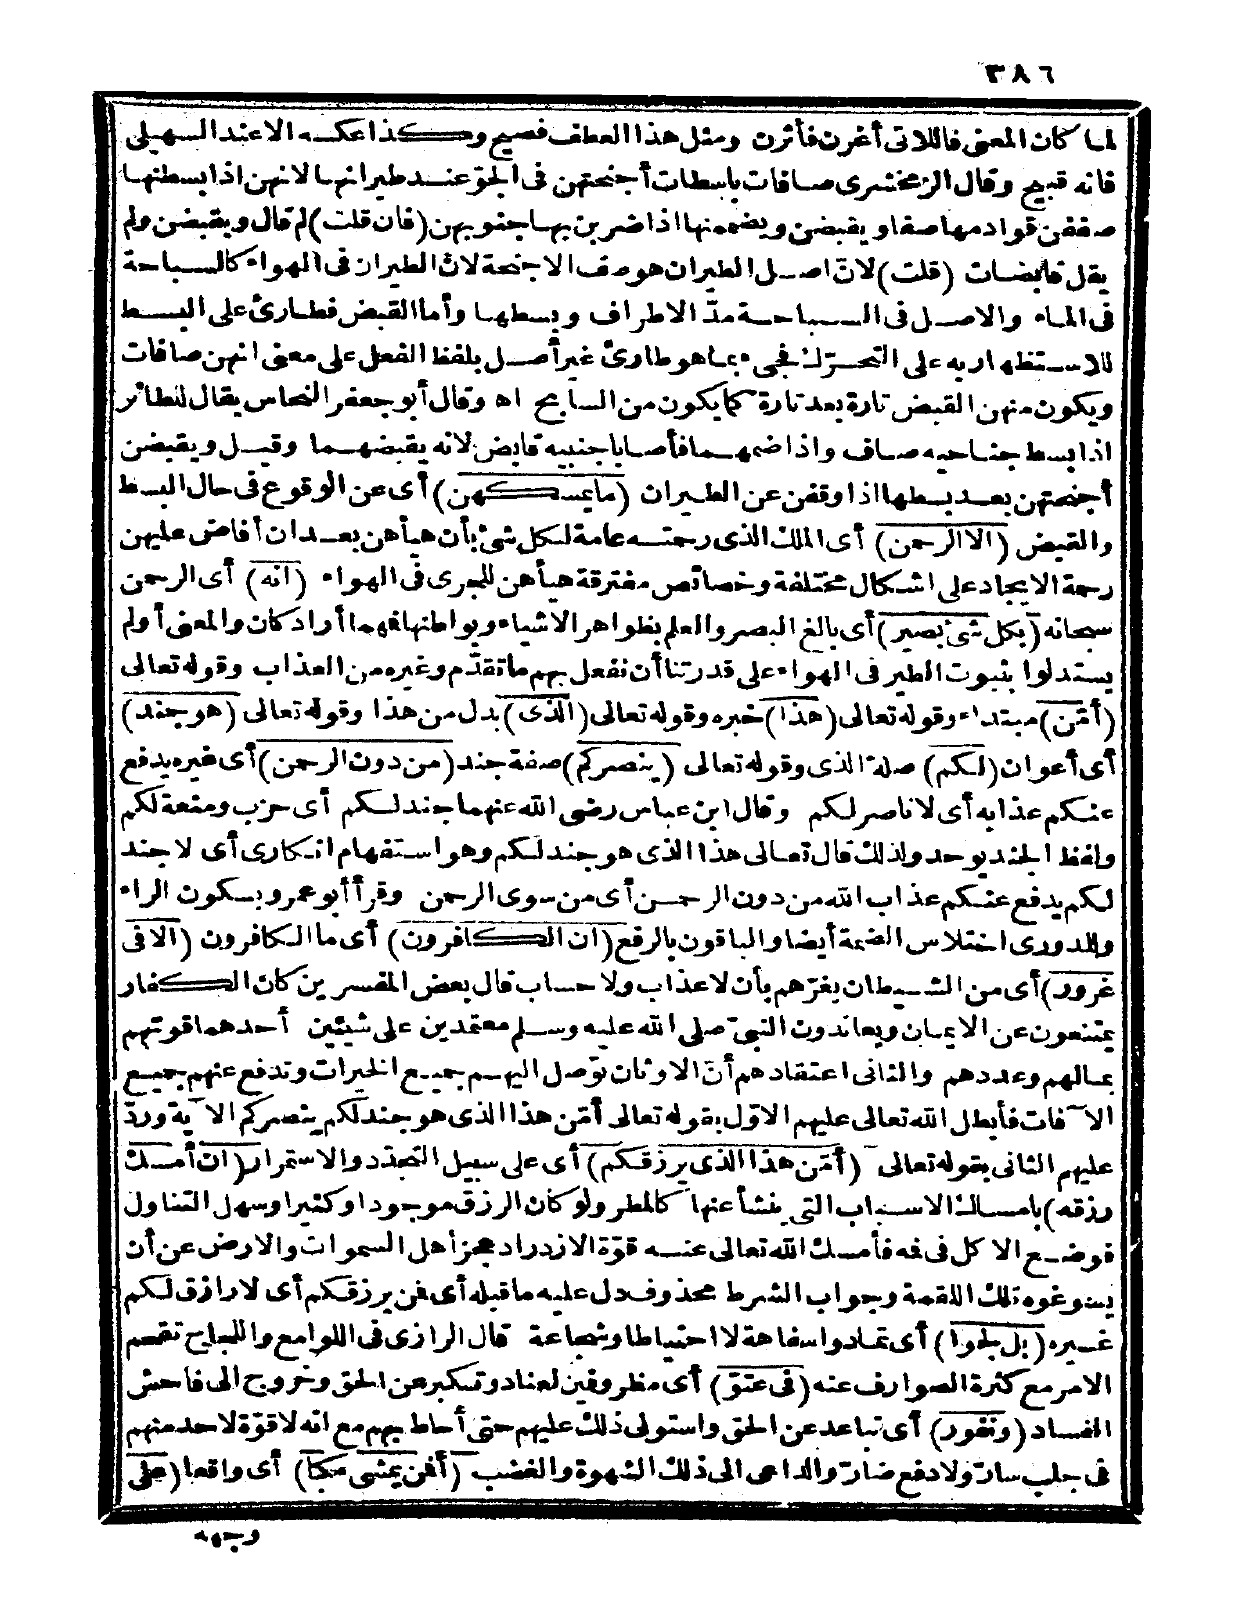 ٣٨٦
لما كان المعنى فاللاتى أغرن فأثرن ومثل هذا العطف فصيح وكذا عكسه الا عند السهيلى
فانه قبيح وقال الزمخشرى صافات باسطات أجنحتهن فى الجوّ عند طيرانها لانهن اذا بسطنها
صففن قوادمها صفا ويقبضن ويضممنها اذا ضربن بها جنوبهن (فان قلت) لم قال ويقبضن ولم
يقل قابضات (قلت) لانّ اصل الطيران هو صف الاجنحة لانّ الطيران فى الهواء كالسباحة
فى الماء والاصل فى السباحة مدّ الاطراف وبسطها وأما القبض فطارئ على البسط
للاستظهار به على التحرّك فجىء بما هو طارئ غير أصل بلفظ الفعل على معنى انهن صافات
ويكون منهن القبض تارة بعد تارة كما يكون من السابح اه وقال أبو جعفر النحاس يقال للطائر
اذا بسط جناحيه صاف واذا ضمهما فأصابا جنبيه قابض لانه يقبضهما وقيل ويقبضن
أجنحتهن بعد بسطها اذا وقفن عن الطيران (ما يمسكهن) أى عن الوقوع فى حال البسط
والقبض (الا الرحمن) أى الملك الذى رحمته عامة لكل شئ بأن هيأهن بعد ان أفاض عليهن
رحمة الايجاد على اشكال مختلفة وخصائص مفترقة هيأهن للجرى فى الهواء (انه) أى الرحمن
سبحانه (بكل شئ بصير) أى بالغ البصر والعلم بظواهر الاشياء وبواطنها فهما أراد كان والمعنى أولم
يستدلوا بثبوت الطير فى الهواء على قدرتنا أن نفعل بهم ما تقدّم وغيره من العذاب وقوله تعالى
(أمّن) مبتداء وقوله تعالى (هذا) خبره وقوله تعالى (الذى) بدل من هذا وقوله تعالى (هو جند)
أى أعوان (لكم) صلة الذى وقوله تعالى (ينصركم) صفة جند (من دون الرحمن) أى غيره يدفع
عنكم عذابه أى لا ناصر لكم وقال ابن عباس رضى الله عنهما جند لكم أى حزب ومنعة لكم
ولفظ الجند يوحد ولذلك قال تعالى هذا الذى هو جند لكم وهو استفهام انكارى أى لا جند
لكم يدفع عنكم عذاب الله من دون الرحمن أى من سوى الرحمن وقرأ أبو عمرو بسكون الراء
وللدورى اختلاس الضمة أيضا والباقون بالرفع (ان الكافرون) أى ما الكافرون (الا فى
غرور) أى من الشيطان يغرّهم بأن لا عذاب ولا حساب قال بعض المفسرين كان الكفار
يمتنعون عن الايمان ويعاندون النبىّ صلى الله عليه وسلم معتمدين على شيئين أحدهما قوتهم
بمالهم وعددهم والثانى اعتقادهم أنّ الاوثان توصل اليهم جميع الخيرات وتدفع عنهم جميع
الآفات فأبطل الله تعالى عليهم الاوّل بقوله تعالى أمّن هذا الذى هو جند لكم ينصركم الآية وردّ
عليهم الثانى بقوله تعالى (أمّن هذا الذى يرزقكم) أى على سبيل التجدّد والاستمرار (ان أمسك
رزقه) بامساك الاسباب التى ينشأ عنها كالمطر ولو كان الرزق موجودا وكثيرا وسهل التناول
فوضع الاكل فى فمه فأمسك الله تعالى عنه قوّة الازدراد عجز أهل السموات والارض عن أن
يسوّغوه تلك اللقمة وجواب الشرط محذوف دل عليه ما قبله أى فمن يرزقكم أى لا رازق لكم
غيره (بل لجوا) أى تمادوا سفاهة لا احتياطا وشجاعة قال الرازى فى اللوامع واللجاج تقحم
الامر مع كثرة الصوارف عنه (فى عتوّ) أى مظروفين لعناد وتكبر عن الحق وخروج الى فاحش
الفساد (ونفور) أى تباعد عن الحق واستولى ذلك عليهم حتى أحاط بهم مع انه لا قوّة لاحد منهم
فى جلب سارّ ولا دفع ضارّ والداعى الى ذلك الشهوة والغضب (أفمن يمشى مكبا) أى واقعا (على
وجهه